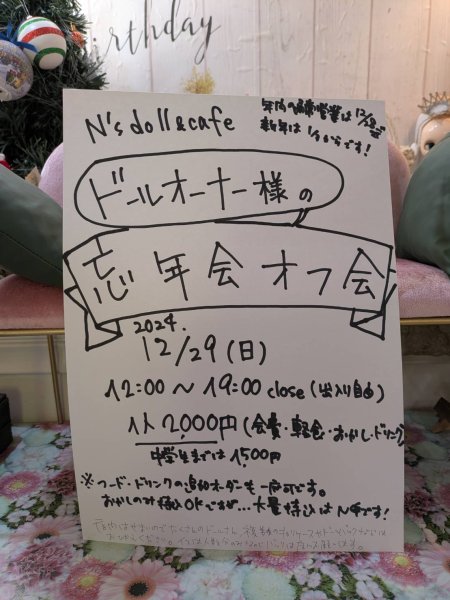 birthday
N's doll&cafe
年内の通常営業は12/28まで
新年は1/9からです！
ドールオーナー様の
忘年会オフ会
2024.
12/29(日)
12:00～19:00 close (出入り自由)
1人 2,000円(会費・軽食・おかし・ドリンク)
中学生までは1,500円
※フード・ドリンクの追加オーダーも可能です。
おかしのみ持込OKですが…大量持込はNGです！